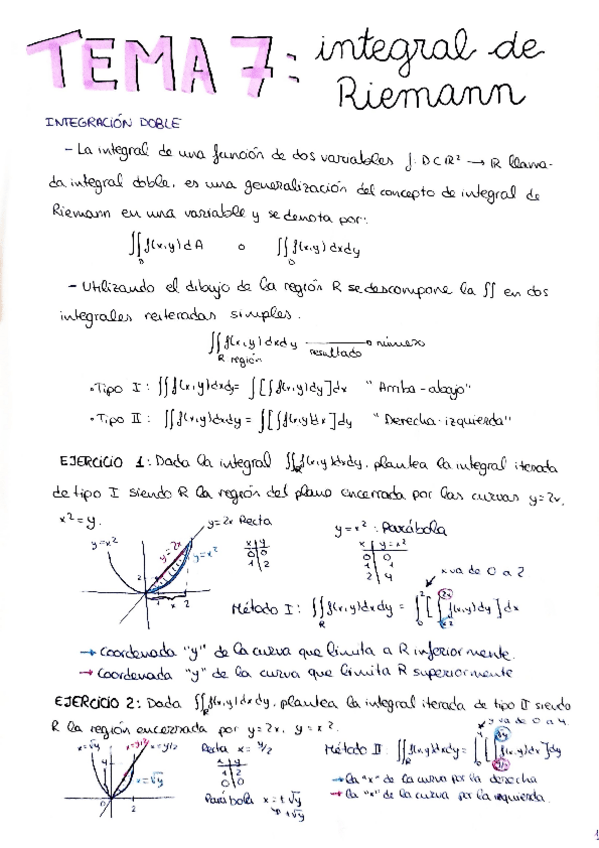 TEMA 7: integral de
Riemann
INTEGRACIÓN DOBLE
- La integral de una función de dos variables f: D ⊂ ℝ² → ℝ llama-
da integral doble, es una generalización del concepto de integral de
Riemann en una variable y se denota por:
∬_D f(x,y) dA o ∬_D f(x,y) dxdy
- Utilizando el dibujo de la región R se descompone la ∬ en dos
integrales reiteradas simples.
∬_R f(x,y) dxdy resultado → número
R región
• Tipo I: ∬ f(x,y) dxdy = ∫ [∫ f(x,y) dy] dx "Arriba-abajo"
• Tipo II: ∬ f(x,y) dxdy = ∫ [∫ f(x,y) dx] dy "Derecha-izquierda"
EJERCICIO 1: Dada la integral ∬_R f(x,y) dxdy, plantea la integral iterada
de tipo I siendo R la región del plano encerrada por las curvas y=2x,
x²=y.
y=x²
y=2x Recta
y=2x
y=x²
2
1 x 2
x y
0 0
1 2
y=x² : Parábola
x y=x²
0 0
1 1
2 4
x va de 0 a 2
Método I: ∬_R f(x,y) dxdy = ∫_0^2 [∫_{x²}^{2x} f(x,y) dy] dx
→ Coordenada "y" de la curva que limita a R inferiormente.
→ Coordenada "y" de la curva que limita R superiormente
EJERCICIO 2: Dada ∬_R f(x,y) dxdy, plantea la integral iterada de tipo II siendo
R la región encerrada por y=2x, y=x².
y va de 0 a 4.
x=√y x=y/2 x=y/2
4
x=√y
0 2
Recta x= y/2
x y
1 2
0 0
Parábola x=±√y
→ +√y
Método II: ∬_R f(x,y) dxdy = ∫_0^4 [∫_{y/2}^{√y} f(x,y) dx] dy
→ la "x" de la curva por la derecha
→ la "x" de la curva por la izquierda.
1